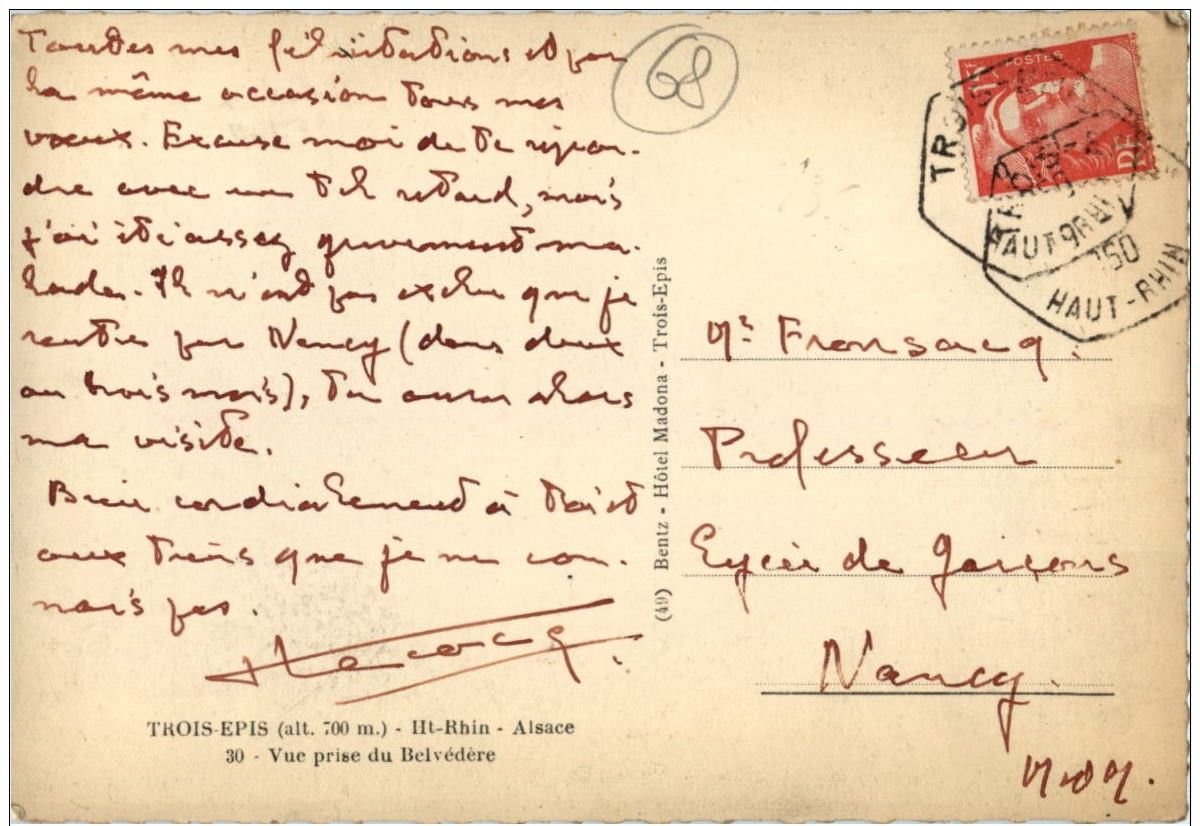 Toutes mes félicitations et par
la même occasion tous mes
voeux. Excuse moi de te répon-
dre avec un tel retard, mais
j'ai été assez gravement ma-
lade. Il n'est pas exclu que je
rentre par Nancy (dans deux
ou trois mois), tu auras alors
ma visite.
Bien cordialement à toi et
aux tiens que je ne con-
nais pas.
68
POSTES
RF
TROIS-
HAUT-RHIN
HAUT-RHIN
(49) Bentz - Hôtel Madona - Trois-Epis
Mr Fronsacq.
Professeur
Lycée de Garçons
Nancy.
M-&-M.
TROIS-EPIS (alt. 700 m.) - Ht-Rhin - Alsace
30 - Vue prise du Belvédère